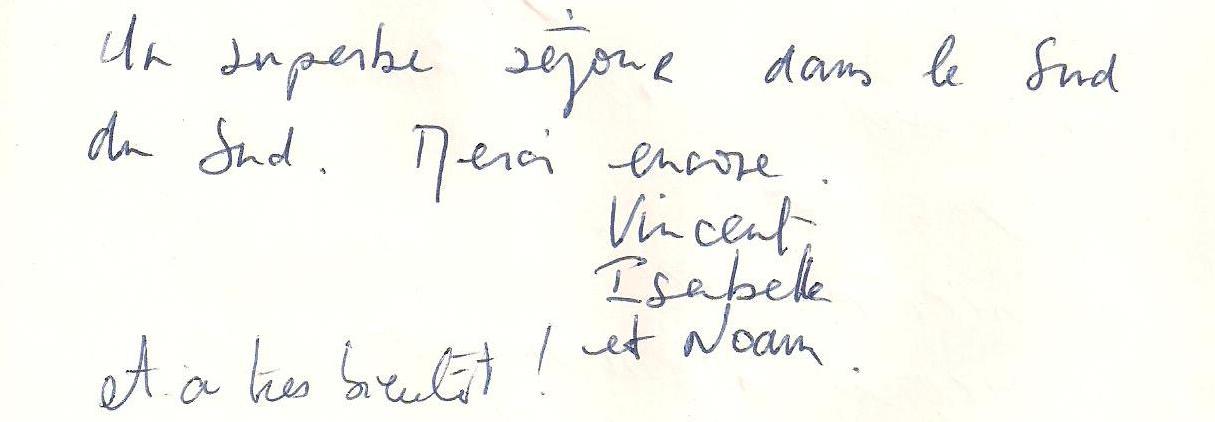 Un superbe séjour dans le Sud
du Sud. Merci encore.
Vincent
Isabelle
et Noam.
et a tres bientôt !